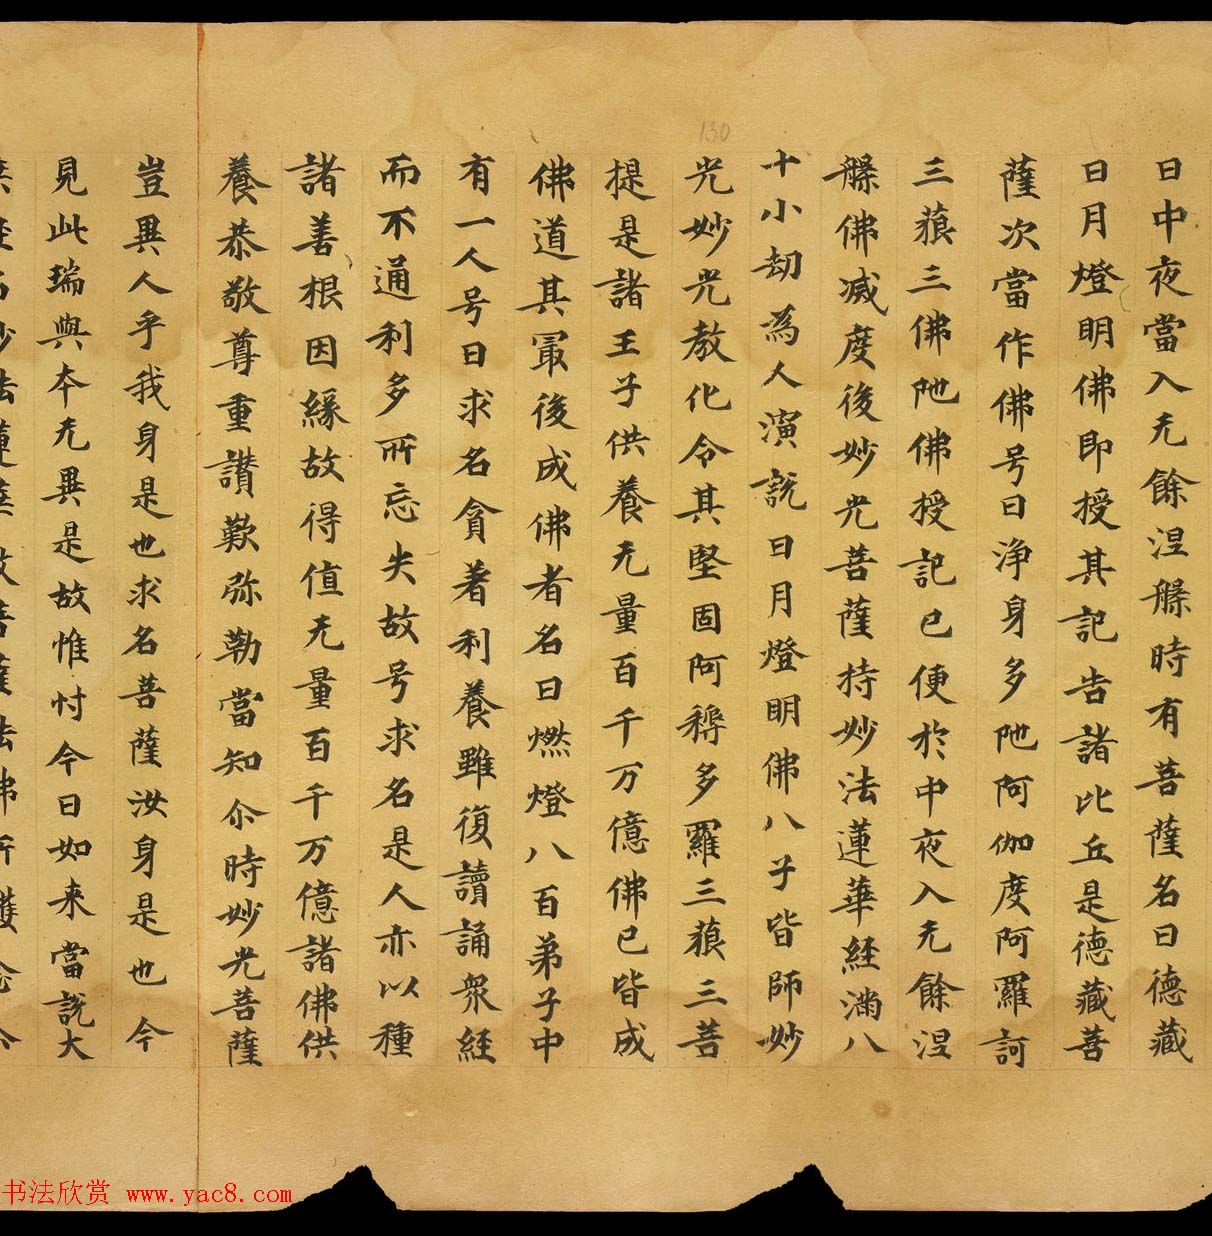 130
日中夜當入无餘涅槃時有菩薩名曰德藏
日月燈明佛即授其記告諸比丘是德藏菩
薩次當作佛号曰淨身多阤阿伽度阿羅訶
三藐三佛阤佛授記已便於中夜入无餘涅
槃佛滅度後妙光菩薩持妙法蓮華經滿八
十小劫為人演說日月燈明佛八子皆師妙
光妙光教化令其堅固阿耨多羅三藐三菩
提是諸王子供養无量百千万億佛已皆成
佛道其冣後成佛者名曰燃燈八百弟子中
有一人号曰求名貪著利養雖復讀誦衆經
而不通利多所忘失故号求名是人亦以種
諸善根因緣故得值无量百千万億諸佛供
養恭敬尊重讃歎弥勒當知尒時妙光菩薩
豈異人乎我身是也求名菩薩汝身是也今
見此瑞與本无異是故惟忖今日如来當說大
妙法蓮華教菩薩法佛所護念
书法欣赏 www.yac8.com